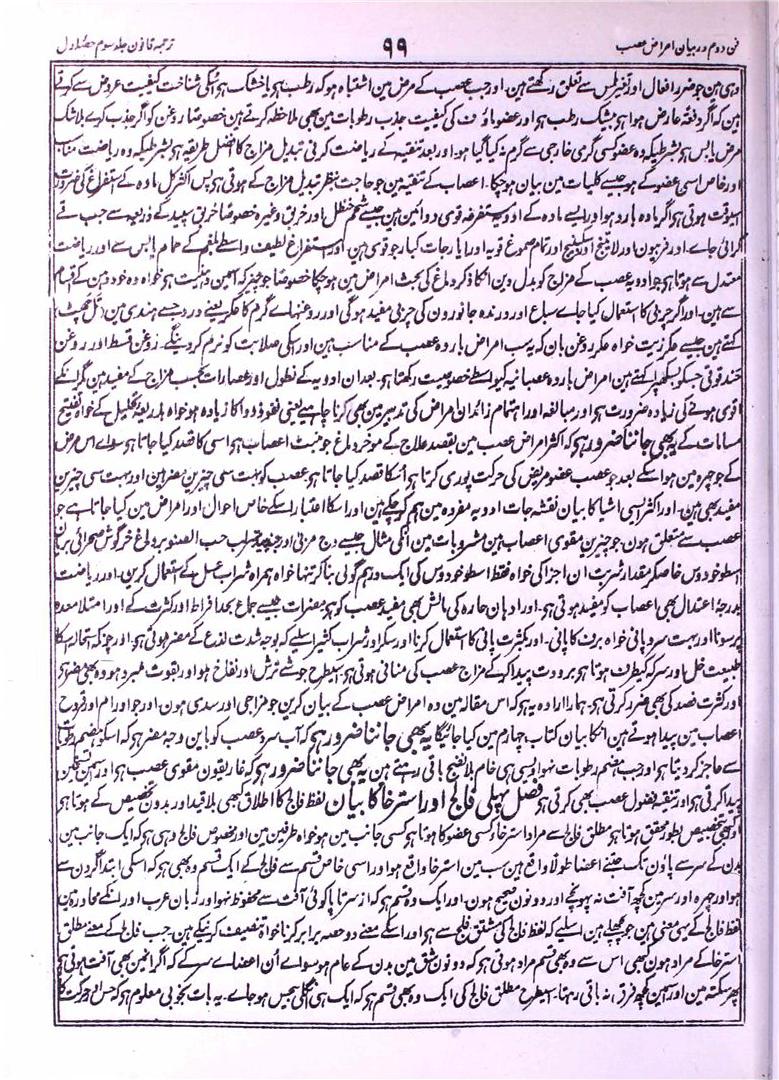 فن دوم در بیان امراض عصب ۹۹ ترجمہ قانون جلد سوم حصہ اول
وہی ہین جو ضرر افعال اور تغیر لمس سے تعلق رکھتے ہین۔ اور جب عصب کے مرض مین اشتباہ ہو کہ رطب ہو یا خشک ہو اُسکی شناخت کیفیت عروض سے کرتے
ہین کہ اگر دفعۃً عارض ہوا ہو بیشک رطب ہو اور عضو ماؤف کی کیفیت جذب رطوبات مین بھی ملاحظہ کرتے ہین خصوصًا روغن کو اگر جذب کرے بلا شک
مرض یابس ہو بشرطیکہ وہ عضو کسی گرمی خارجی سے گرم نہ کیا گیا ہو۔ اور بعد تنقیہ کے ریاضت کرنی تبدیل مزاج کا افضل طریقہ ہو بشرطیکہ وہ ریاضت مناسب
اور خاص اسی عضو کے ہو جیسے کلیات مین بیان ہو چکا۔ اعصاب کے تنقیہ مین جو حاجت بنظر تبدیل مزاج کے ہوتی ہو پس اکثر کل مادہ کے استفراغ کی ضرورت
اسیوقت ہوتی ہو اگر مادہ بارد ہو اور ایسے مادہ کے ادویہ مستفرغہ قوی دوائین ہین جیسے شحم حنظل اور خربق وغیرہ خصوصًا خربق سپید کے ذریعہ سے جب قے
کرائی جاے۔ اور فربیون اور اسکبینج اور تمام صموغ قویہ اور ایارجات کبار جو قوی ہین۔ اور استفراغ لطیف واسطے بلغم کے حمام یابس سے اور ریاضت
معتدل سے ہوتا ہو جو ادویہ عصب کے مزاج کو بدل دین انکا ذکر دماغ کی بحث امراض مین ہو چکا خصوصًا جو چیز کہ اسمین دہنیت ہو خواہ وہ خود دہن کے اقسام
سے ہین۔ اور اگر چربی کا استعمال کیا جاے سباع اور درندہ جانورون کی چربی مفید ہوگی اور روغنہاے گرم کا عکر یعنے درد جسے ہندی مین (تل چھٹ)
کہتے ہین جیسے عکر زیت خواہ عکر روغن بان کہ یہ سب امراض باردہ عصب کے مناسب ہین اور اسکی صلابت کو نرم کر دینگے۔ روغن قسط اور روغن
حندقوقی جسکو بسکھپرا کہتے ہین امراض باردہ عصبانیہ کیواسطے خصوصیت رکھتا ہو۔ بعد ان ادویہ کے نطول اور عصارات بحسب مزاج کے مفید ہین مگر انکے
اقوی ہونے کی زیادہ ضرورت ہو اور مبالغہ اور اہتمام زائد ان امراض کی تدبیر مین بھی کرنا چاہیے یعنی نفوذ دوا کا زیادہ ہو خواہ بذریعہ تحلیل کے خواہ تفتیح
مسامات کے یہ بھی جاننا ضرور ہو کہ اکثر امراض عصب مین بقصد علاج کے موخر دماغ جو منبت اعصاب ہو اسی کا قصد کیا جاتا ہو سواے اس مرض
کے جو چہرہ مین ہو اسکے بعد جو عصب عضو مریض کی حرکت پوری کرتا ہو اُسکا قصد کیا جاتا ہو عصب کو بہت سی چیزین مضر ہین اور بہت سی چیزین
مفید بھی ہین۔ اور اکثر ایسی اشیا کا بیان نقشہ جات ادویہ مفردہ مین ہم کر چکے ہین اور اسکا اعتبار اسکے خاص احوال اور امراض مین کیا جاتا ہے جو
عصب سے متعلق ہون۔ جو چیزین مقوی اعصاب ہین مشروبات مین انکی مثال جیسے وج مربٰی اور جندبیدستر لب حب الصنوبر دماغ خرگوش صحرائی بریان
اسطوخودوس خاصکر مقدار شربت ان اجزا کی خواہ فقط اسطوخودوس کی ایک درہم گولی بنا کر تنہا خواہ ہمراہ شراب عسل کے استعمال کرین۔ اور ریاضت
بدرجۂ اعتدال بھی اعصاب کو مفید ہوتی ہو۔ اور ادہان حارہ کی مالش بھی مفید عصب کو ہو مضرات جیسے جماع بحد افراط اور کثرت کے اور امتلاء معدہ
پر سونا اور بہت سرد پانی خواہ برف کا پانی۔ اور بکثرت پانی کا استعمال کرنا اور سکر اور شراب کثیر اسلیے کہ بوجہ شدت لذع کے مضر ہوتی ہو۔ اور چونکہ استحالہ اسکا
طبیعت خل اور سرکہ کیطرف ہوتا ہو برودت پیدا کرکے مزاج عصب کی منافی ہوتی ہو اسیطرح جو شے ترش اور نفاخ ہو اور بقوت مبرد ہو وہ بھی مضر ہو
اور کثرت فصد کی بھی ضرر کرتی ہو۔ ہمارا ارادہ یہ ہو کہ اس مقالہ مین وہ امراض عصب کے بیان کرین جو مزاجی اور سدی ہون۔ اور جو اورام اور قروح
اعصاب مین پیدا ہوتے ہین انکا بیان کتاب چہارم مین کیا جائیگا یہ بھی جاننا ضرور ہو کہ آب سرد عصب کو باین وجہ مضر ہو کہ اسکو ہضم رطوبات
سے عاجز کر دیتا ہو اور جب ہضم رطوبات نہوا ویسی ہی خام بلا نضج باقی رہتے ہین یہ بھی جاننا ضرور ہو کہ غاریقون مقوی عصب ہو اور سہمین تسخین
پیدا کرتی ہو اور تنقیہ فضول عصب بھی کرتی ہو فصل پہلی فالج اور استرخا کا بیان لفظ فالج کا اطلاق کبھی بلا قید اور بدون تخصیص کے ہوتا ہو
اور کبھی تخصیص بطور محقق ہوتا ہو مطلق فالج سے مراد استرخا کسی عضو کا ہوتا ہو کسی جانب مین ہو خواہ طرفین مین اور مخصوص فالج وہی ہو کہ ایک جانب مین
بدن کے سر سے پاؤن تک جتنے اعضا طولًا واقع ہین سب مین استرخا واقع ہو اور اسی خاص قسم سے فالج کے ایک قسم وہ بھی ہو کہ اسکی ابتدا گردن سے
ہو اور چہرہ اور سر مین کچھ آفت نہ پہونچے اور دونون صحیح ہون۔ اور ایک وہ قسم ہو کہ از سر تا پا کوئی آفت سے محفوظ نہو اور زبان عرب اور انکے محاورہ مین
لفظ فالج کے یہی معنی ہین جو پچھلے ہین اسلیے کہ لفظ فالج کی مشتق فلج سے ہو اور اسکے معنے دو حصہ برابر کرنا خواہ تنصیف کرنیکے ہین۔ جب فالج کے معنے مطلق
استرخا کے مراد ہون کبھی اس سے وہ بھی قسم مراد ہوتی ہو کہ دونون شق مین بدن کے عام ہو سواے اُن اعضاے سر کے کہ اگر انمین بھی آفت ہوتی تو
پھر سکتہ مین اور اسمین کچھ فرق نہ باقی رہتا۔ اسیطرح مطلق فالج کی ایک وہ بھی قسم ہو کہ ایک ہی انگلی بیحس ہو جاے۔ یہ بات بخوبی معلوم ہو کہ حس و حرکت کا